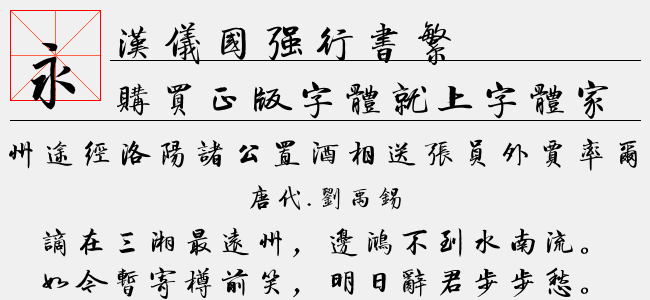 永
漢儀國强行書繁
購買正版字體就上字體家
州途經洛陽諸公置酒相送張員外賈率爾
唐代.劉禹錫
謫在三湘最遠州，邊鴻不到水南流。
如今暫寄樽前笑，明日辭君步步愁。